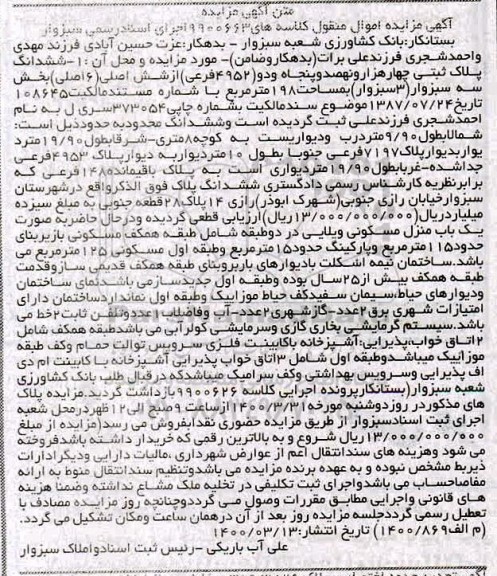 متن آگهی مزایده
آگهی مزایده اموال منقول کلاسه های ۹۹۰۰۶۶۳ اجرای اسناد رسمی سبزوار
بستانکار: بانک کشاورزی شعبه سبزوار - بدهکار: عزت حسین آبادی فرزند مهدی
واحمدشجری فرزندعلی برات(بدهکاروضامن)- مورد مزایده و محل آن :۱-ششدانگ
پلاک ثبتی چهارهزارونهصدوپنجاه ودو(۴۹۵۲فرعی)ازشش اصلی(۶اصلی)بخش
سه سبزوار(۳سبزوار)بمساحت۱۹۸مترمربع با شماره مستندمالکیت۱۰۸۶۴۵
تاریخ۱۳۸۷/۰۷/۲۴موضوع سندمالکیت بشماره چاپی۳۷۳۰۵۴سری ل به نام
احمدشجری فرزندعلی ثبت گردیده است وششدانگ محدودبه حدودذیل است:
شمالابطول۹/۹۰متردرب ودیواریست به کوچه۸متری-شرقابطول۱۹/۹۰مترد
یواربدیوارپلاک۷۱۹۷فرعی جنوبا بطول ۱۰ متردیواربه دیوارپلاک ۴۹۵۳فرعی
جداشده-غربابطول۱۹/۹۰متردیواری است به پلاک باقیمانده۱۴۸فرعی که
برابرنظریه کارشناس رسمی دادگستری ششدانگ پلاک فوق الذکرواقع درشهرستان
سبزوارخیابان رازی جنوبی(شهرک ابوذر)رازی ۱۴پلاک۲۸قطعه جنوبی به مبلغ سیزده
میلیاردریال(۱۳/۰۰۰/۰۰۰/۰۰۰ریال)ارزیابی قطعی گردیده ودرحال حاضربه صورت
یک باب منزل مسکونی ویلایی در دوطبقه شامل طبقه همکف مسکونی بازیربنای
حدود۱۱۵مترمربع وپارکینگ حدود۱۵مترمربع وطبقه اول مسکونی ۱۲۵مترمربع می
باشد.ساختمان نیمه اسکلت بادیوارهای باربروبنای طبقه همکف قدیمی سازوقدمت
طبقه همکف بیش از۲۵سال بوده وطبقه اول جدیدسازمی باشدنمای ساختمان
ودیوارهای حیاط،سیمان سفیدکف حیاط موزاییک وطبقه اول نمانداردساختمان دارای
امتیازات شهری برق۲عدد-گازشهری۲عدد-آب وفاضلاب۱عددوتلفن ثابت۲خط می
باشد.سیستم گرمایشی بخاری گازی وسرمایشی کولرآبی می باشدطبقه همکف شامل
۲اتاق خواب،پذیرایی:آشپزخانه باکابینت فلزی سرویس توالت حمام وکف طبقه
موزاییک میباشدوطبقه اول شامل ۳اتاق خواب پذیرایی آشپزخانه با کابینت ام دی
اف پذیرایی وسرویس بهداشتی وکف سرامیک میباشدکه درقبال طلب بانک کشاورزی
شعبه سبزوار(بستانکارپرونده اجرایی کلاسه ۹۹۰۰۶۲۶بازداشت گردید.مزایده پلاک
های مذکوردر روزدوشنبه مورخه ۱۴۰۰/۳/۳۱ازساعت ۹صبح الی۱۲ظهردرمحل شعبه
اجرای ثبت اسنادسبزوار از طریق مزایده حضوری نقدابفروش می رسد(مزایده از مبلغ
۱۳/۰۰۰/۰۰۰/۰۰۰ریال شروع و به بالاترین رقمی که خریدار داشته باشدفروخته
می شود وهزینه های سندانتقال اعم از عوارض شهرداری ،مالیات دارایی ودیگرادارات
ذیربط مشخص نبوده و به عهده برنده مزایده می باشدوتنظیم سندانتقال منوط به ارائه
مفاصاحساب می باشدواجرای ثبت تکلیفی در تخلیه ملک مشاع نداشته وضمنا هزینه
های قانونی واجرایی مطابق مقررات وصول می گرددوچنانچه روز مزایده مصادف با
تعطیل رسمی گرددجلسه مزایده روز بعد از آن درهمان ساعت ومکان تشکیل می گردد.
(م الف۱۴۰۰/۸۶۹) تاریخ انتشار:۱۴۰۰/۰۳/۱۳
علی آب باریکی -رئیس ثبت اسنادواملاک سبزوار